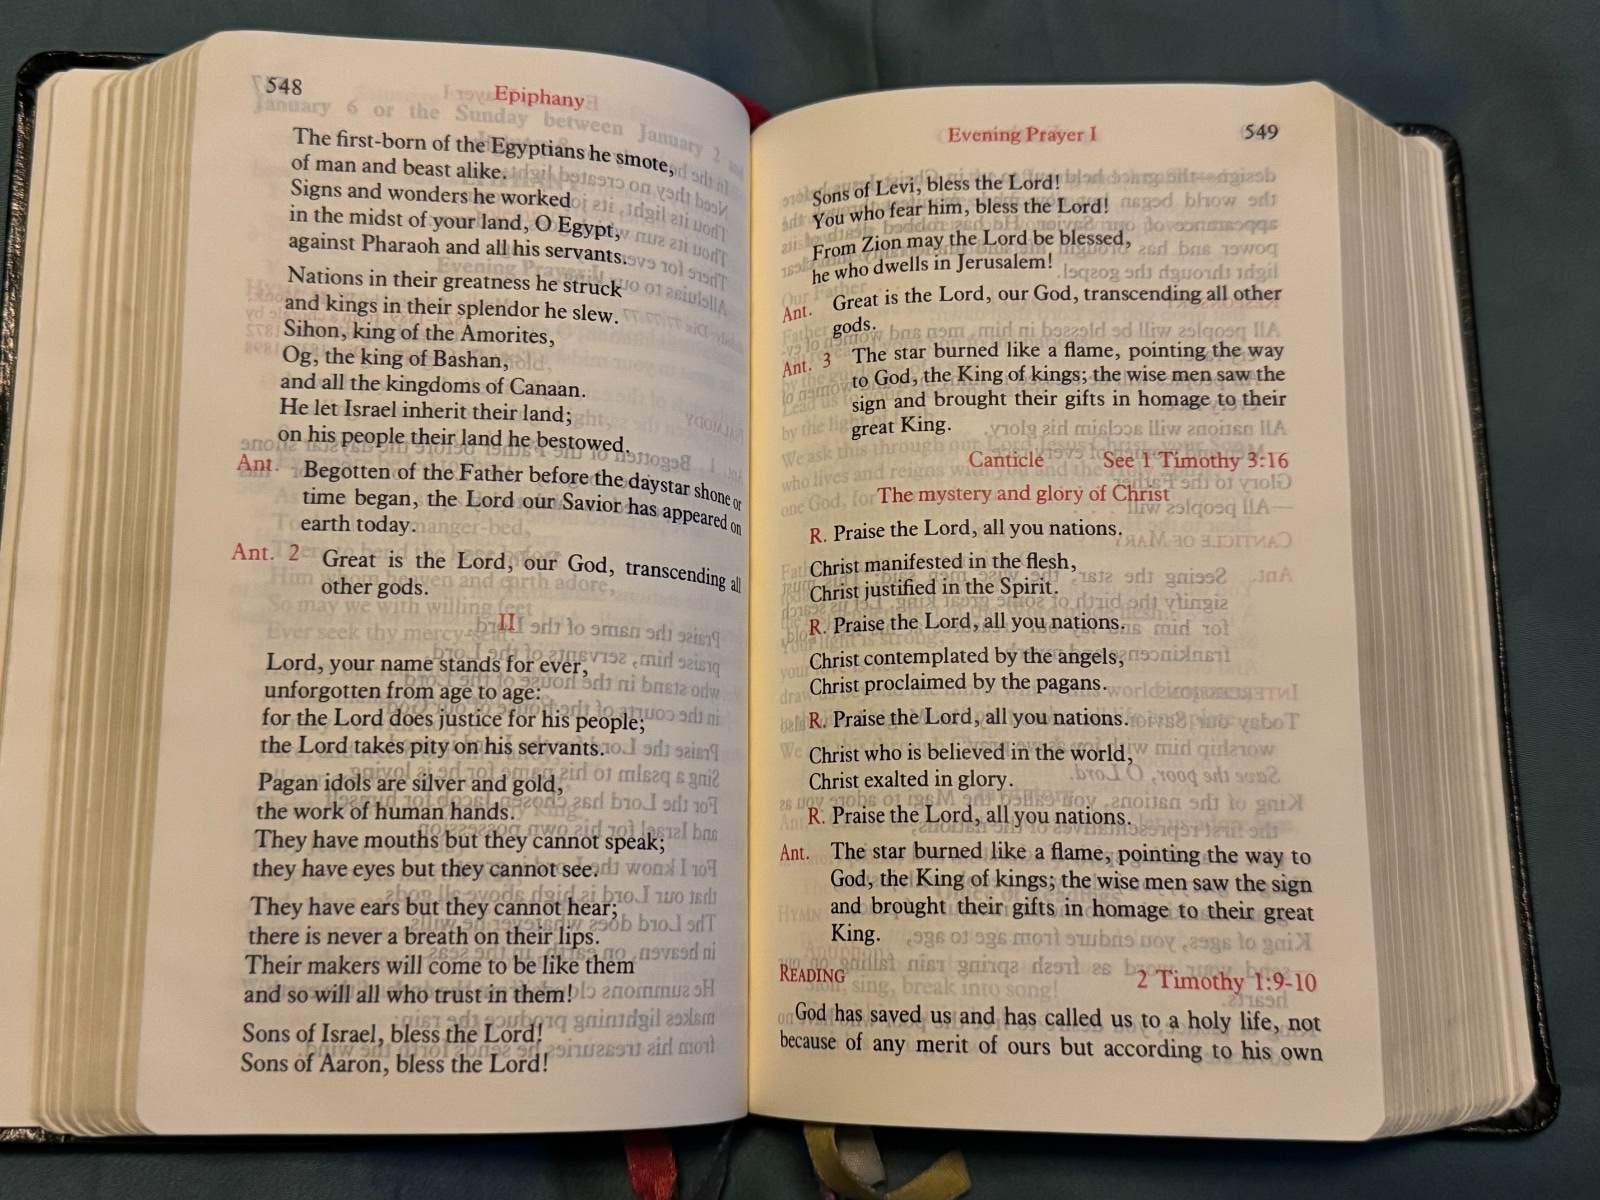 548
Epiphany
The first-born of the Egyptians he smote,
of man and beast alike.
Signs and wonders he worked
in the midst of your land, O Egypt,
against Pharaoh and all his servants.
Nations in their greatness he struck
and kings in their splendor he slew.
Sihon, king of the Amorites,
Og, the king of Bashan,
and all the kingdoms of Canaan.
He let Israel inherit their land;
on his people their land he bestowed.
Ant. Begotten of the Father before the daystar shone or
time began, the Lord our Savior has appeared on
earth today.
Ant. 2 Great is the Lord, our God, transcending all
other gods.
II
Lord, your name stands for ever,
unforgotten from age to age:
for the Lord does justice for his people;
the Lord takes pity on his servants.
Pagan idols are silver and gold,
the work of human hands.
They have mouths but they cannot speak;
they have eyes but they cannot see.
They have ears but they cannot hear;
there is never a breath on their lips.
Their makers will come to be like them
and so will all who trust in them!
Sons of Israel, bless the Lord!
Sons of Aaron, bless the Lord!
Evening Prayer I
549
Sons of Levi, bless the Lord!
You who fear him, bless the Lord!
From Zion may the Lord be blessed,
he who dwells in Jerusalem!
Ant. Great is the Lord, our God, transcending all other
gods.
Ant. 3 The star burned like a flame, pointing the way
to God, the King of kings; the wise men saw the
sign and brought their gifts in homage to their
great King.
Canticle See 1 Timothy 3:16
The mystery and glory of Christ
R. Praise the Lord, all you nations.
Christ manifested in the flesh,
Christ justified in the Spirit.
R. Praise the Lord, all you nations.
Christ contemplated by the angels,
Christ proclaimed by the pagans.
R. Praise the Lord, all you nations.
Christ who is believed in the world,
Christ exalted in glory.
R. Praise the Lord, all you nations.
Ant. The star burned like a flame, pointing the way to
God, the King of kings; the wise men saw the sign
and brought their gifts in homage to their great
King.
READING 2 Timothy 1:9-10
God has saved us and has called us to a holy life, not
because of any merit of ours but according to his own